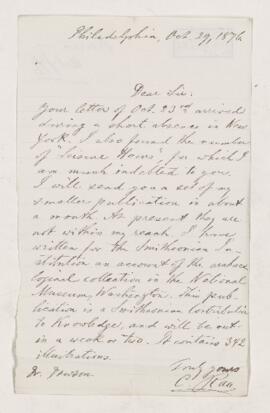 Philadelphia, Oct. 29, 1876.
Dear Sir:
Your letter of Oct. 23rd arrived
during a short absence in New
York. I also found the number
of "Science News", for which I
am much indebted to you.
I will send you a set of my
smaller publication in about
a month. At present they are
not within my reach. I have
written for the Smithsonian In-
stitution an account of the archaeo-
logical collection in the National
Museum, Washington. This pub-
lication is a Smithsonian Contribution
to Knowledge, and will be out
in a week or two. It contains 342
illustrations.
Truly yours
C. Rau.
Dr.